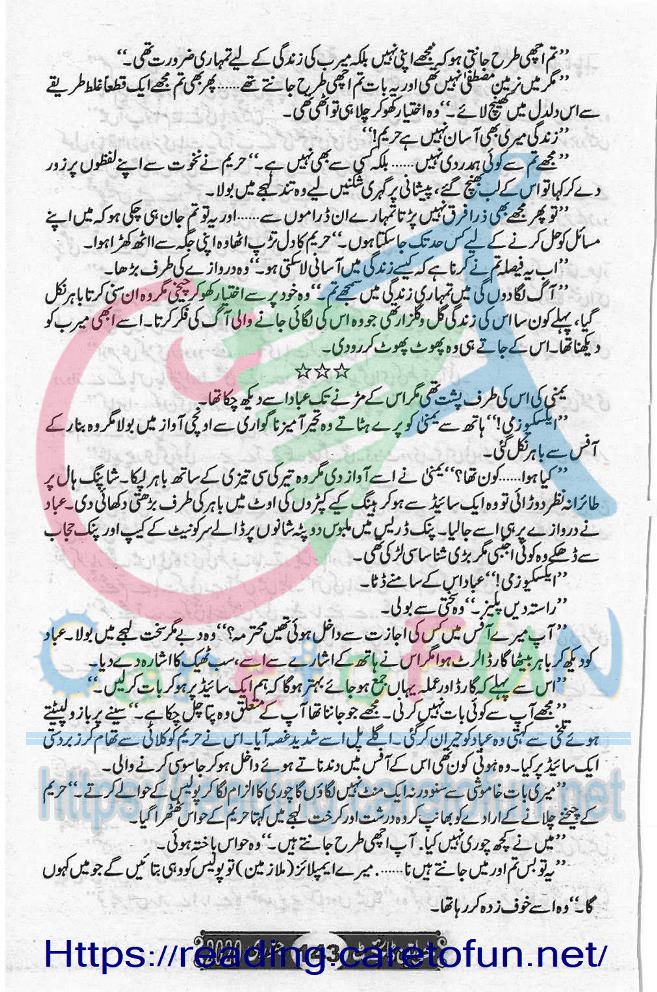 ’’تم اچھی طرح جانتی ہو کہ مجھے اپنی نہیں بلکہ میرب کی زندگی کے لیے تمہاری ضرورت تھی۔‘‘
’’مگر میں نرمین مصطفیٰ نہیں تھی اور یہ بات تم اچھی طرح جانتے تھے...... پھر بھی تم مجھے ایک قطعاً غلط طریقے
سے اس دلدل میں کھینچ لائے۔‘‘ وہ اختیار کھو کر چلا ہی تو اٹھی تھی۔
’’زندگی میری بھی آسان نہیں ہے حریم!‘‘
’’مجھے تم سے کوئی ہمدردی نہیں...... بلکہ کسی سے بھی نہیں ہے۔‘‘ حریم نے نخوت سے اپنے لفظوں پر زور
دے کر کہا تو اس کے لب بھنچ گئے، پیشانی پر گہری شکنیں لیے وہ تند لہجے میں بولا۔
’’تو پھر مجھے بھی ذرا فرق نہیں پڑتا تمہارے ان ڈراموں سے...... اور یہ تو تم جان ہی چکی ہو کہ میں اپنے
مسائل کو حل کرنے کے لیے کس حد تک جا سکتا ہوں۔‘‘ حریم کا دل تڑپ اٹھا وہ اپنی جگہ سے اٹھ کھڑا ہوا۔
’’اب یہ فیصلہ تم نے کرنا ہے کہ کیسے زندگی میں آسانی لا سکتی ہو۔‘‘ وہ دروازے کی طرف بڑھا۔
’’آگ لگا دوں گی میں تمہاری زندگی میں سمجھے تم۔‘‘ وہ خود پر سے اختیار کھو کر چیخی مگر وہ ان سنی کرتا باہر نکل
گیا، پہلے کون سا اس کی زندگی گل و گلزار تھی جو وہ اس کی لگائی جانے والی آگ کی فکر کرتا۔ اسے ابھی میرب کو
دیکھنا تھا۔ اس کے جاتے ہی وہ پھوٹ پھوٹ کر رو دی۔
☆☆☆
یمنیٰ کی اس کی طرف پشت تھی مگر اس کے مڑنے تک عباد اسے دیکھ چکا تھا۔
’’ایکسکیوز می!‘‘ ہاتھ سے یمنیٰ کو پرے ہٹاتے وہ تحیر آمیز ناگواری سے اونچی آواز میں بولا مگر وہ بنا رکے
آفس سے باہر نکل گئی۔
’’کیا ہوا...... کون تھا؟‘‘ یمنیٰ نے اسے آواز دی مگر وہ تیر کی سی تیزی کے ساتھ باہر لپکا۔ شاپنگ ہال پر
طائرانہ نظر دوڑائی تو وہ ایک سائیڈ سے ہو کر ہینگ کیے کپڑوں کی اوٹ میں باہر کی طرف بڑھتی دکھائی دی۔ عباد
نے دروازے پر ہی اسے جا لیا۔ پنک ڈریس میں ملبوس دوپٹہ شانوں پر ڈالے سر کو نیٹ کے کیپ اور پنک حجاب
سے ڈھکے وہ کوئی اجنبی مگر بڑی شناسا سی لڑکی تھی۔
’’ایکسکیوز می!‘‘ عباد اس کے سامنے ڈٹا۔
’’راستہ دیں پلیز۔‘‘ وہ سختی سے بولی۔
’’آپ میرے آفس میں کس کی اجازت سے داخل ہوئی تھیں محترمہ؟‘‘ وہ دبے مگر سخت لہجے میں بولا۔ عباد
کو دیکھ کر باہر بیٹھا گارڈ الرٹ ہوا مگر اس نے ہاتھ کے اشارے سے اسے، سب ٹھیک کا اشارہ دے دیا۔
’’اس سے پہلے کہ گارڈ اور عملہ یہاں جمع ہو جائے بہتر ہوگا کہ ہم ایک سائیڈ پر ہو کر بات کر لیں۔‘‘
’’مجھے آپ سے کوئی بات نہیں کرنی۔ مجھے جو جاننا تھا آپ کے متعلق وہ پتا چل چکا ہے۔‘‘ سینے پر بازو لپیٹتے
ہوئے تلخی سے کہتی وہ عباد کو حیران کر گئی۔ اگلے پل اسے شدید غصہ آیا۔ اس نے حریم کو کلائی سے تھام کر زبردستی
ایک سائیڈ پر کیا۔ وہ ہوتی کون تھی اس کے آفس میں دندناتے ہوئے داخل ہو کر جاسوسی کرنے والی۔
’’میری بات خاموشی سے سنو ورنہ ایک منٹ نہیں لگاؤں گا چوری کا الزام لگا کر پولیس کے حوالے کرتے۔‘‘ حریم
کے چیخنے چلانے کے ارادے کو بھانپ کر وہ درشت اور کرخت لہجے میں کہتا حریم کے حواس ٹھٹھرا گیا۔
’’میں نے کچھ چوری نہیں کیا۔ آپ اچھی طرح جانتے ہیں۔‘‘ وہ حواس باختہ ہوئی۔
’’یہ تو بس تم اور میں جانتے ہیں نا...... میرے ایمپلائز (ملازمین) تو پولیس کو وہی بتائیں گے جو میں کہوں
گا۔‘‘ وہ اسے خوف زدہ کر رہا تھا۔
143
2020
CaretoFUN
https://reading.caretofun.net
Https://reading.caretofun.net/